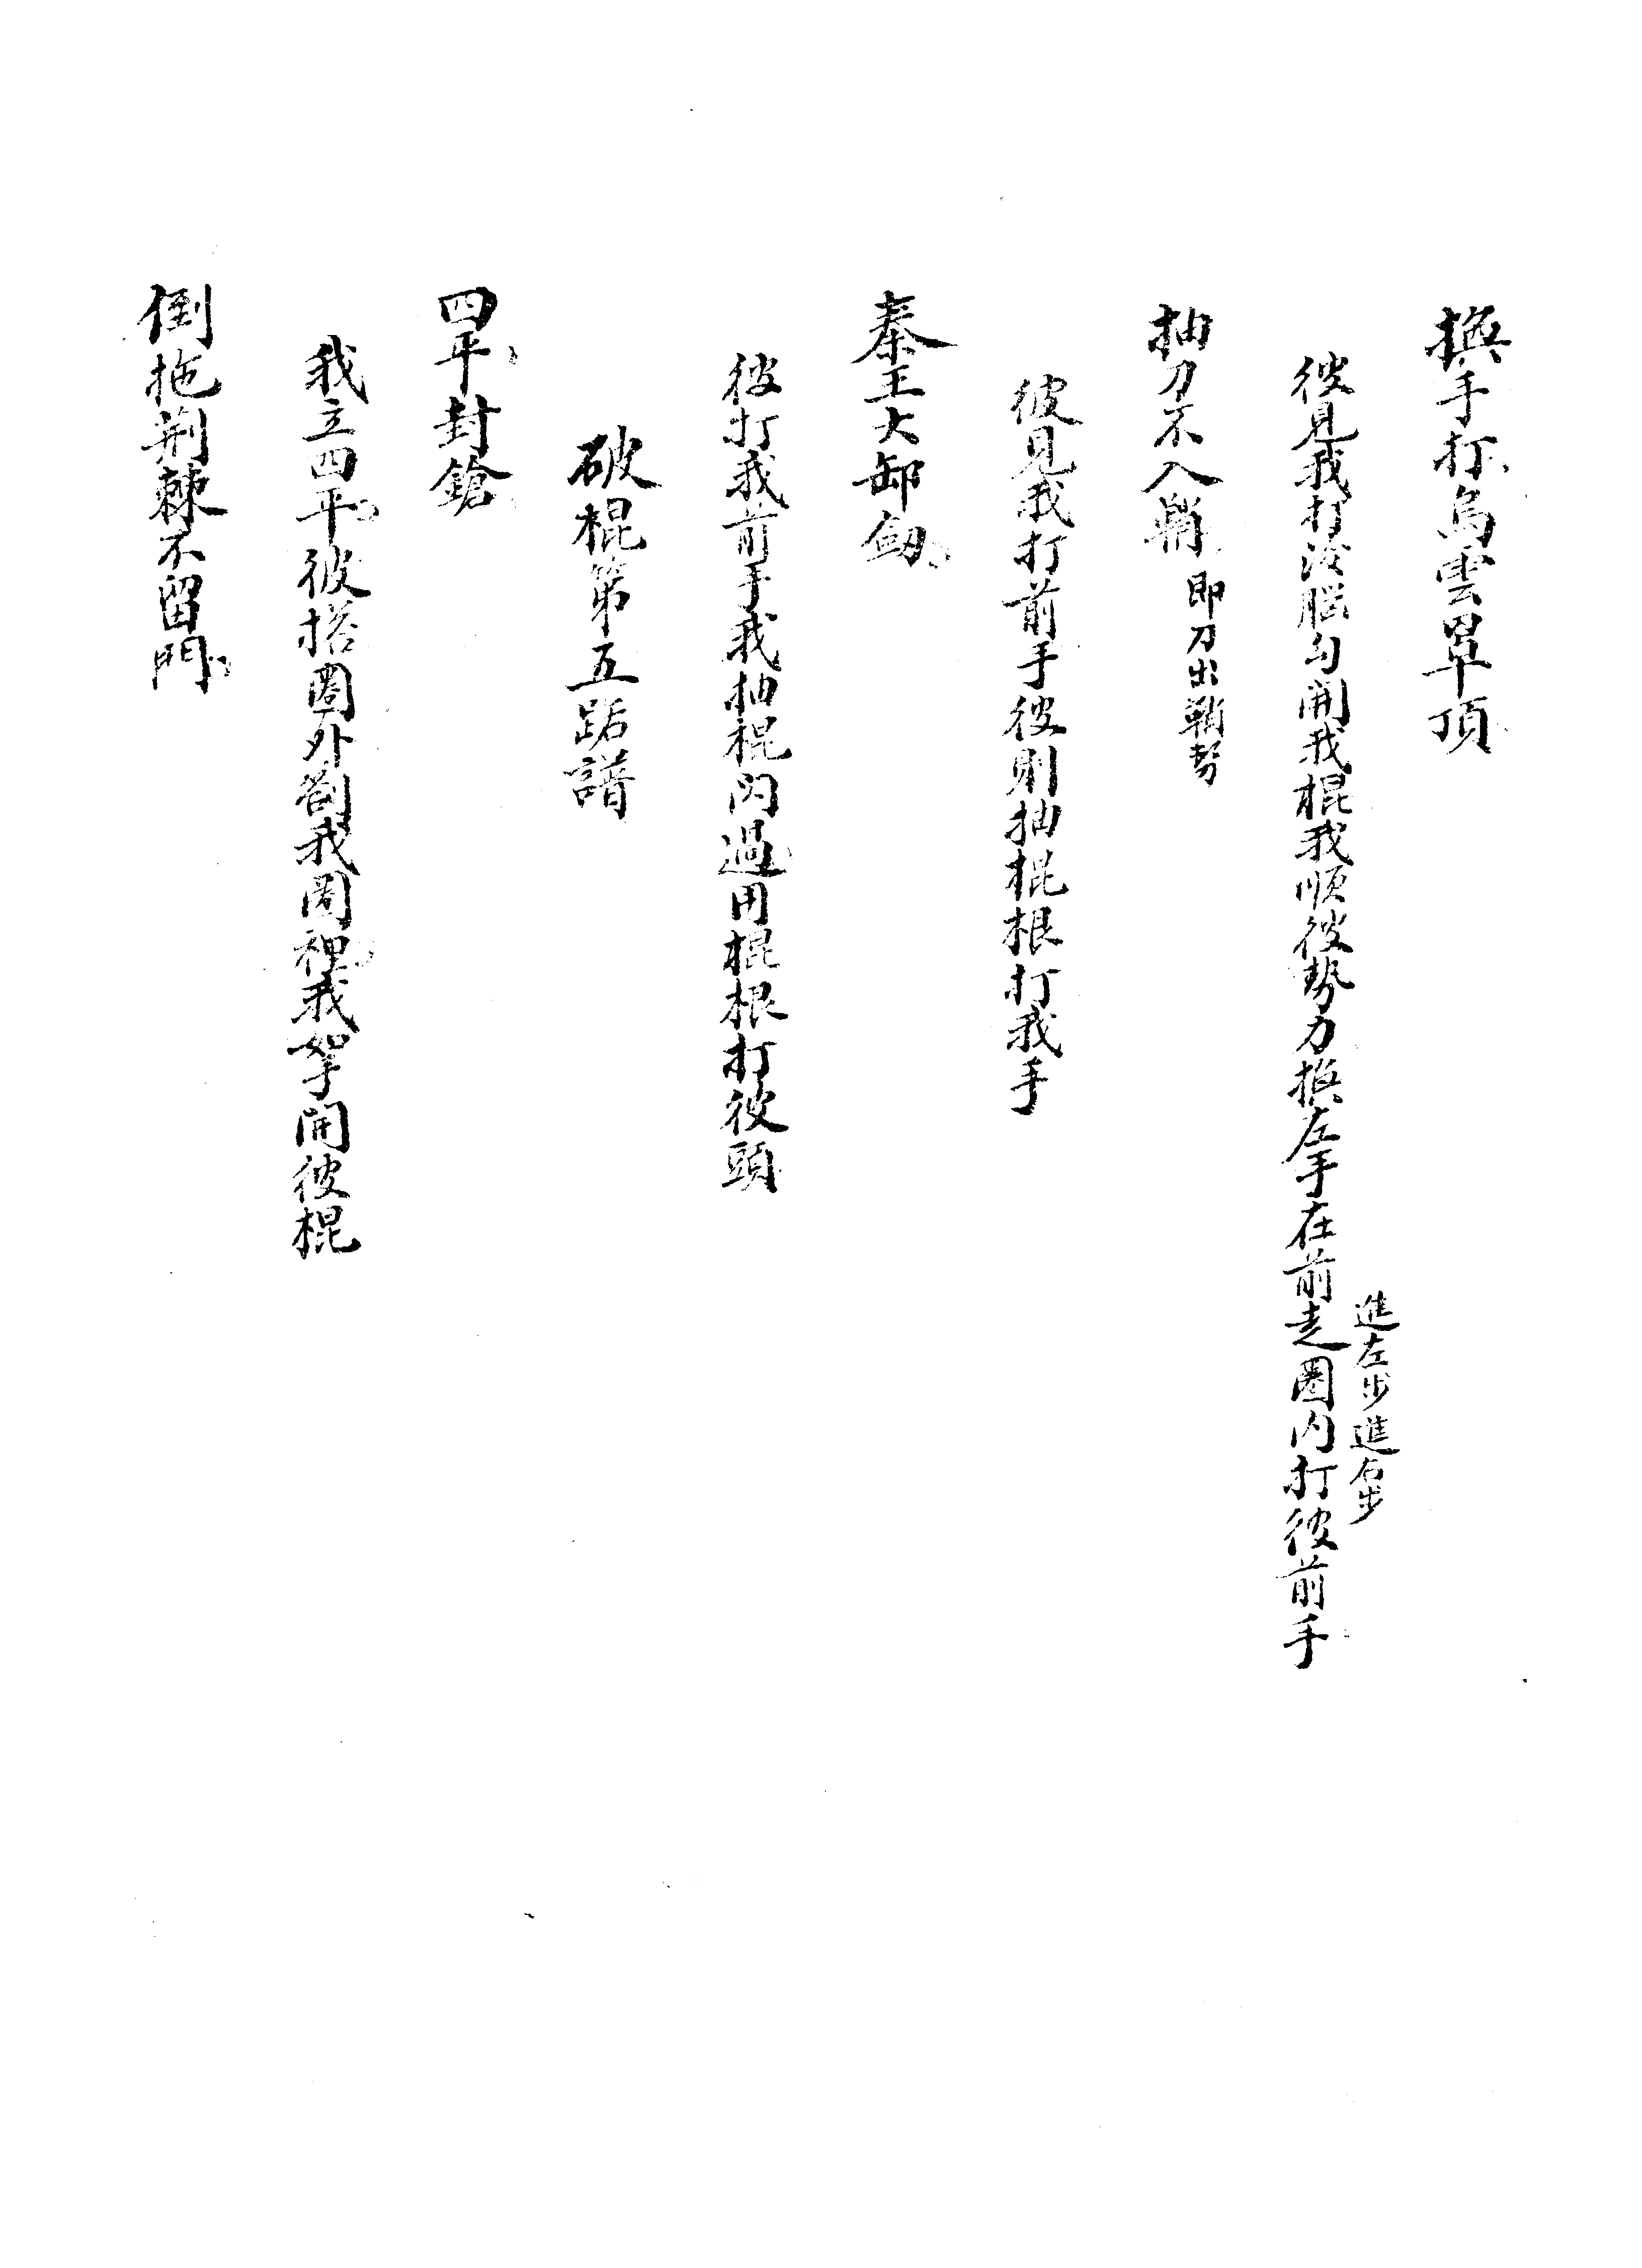 換手打烏雲罩頂
進左步進右步
彼見我打後腦勾開我棍我順彼勢力換左手在前走圈內打彼前手
抽刀不入鞘 即刀出鞘勢
彼見我打前手彼則抽棍根打我手
秦王大卸劍
彼打我前手我抽棍閃過用棍根打彼頭
破棍第五路譜
四平封鎗
我立四平彼搭圈外劄我圈裡我拏開彼棍
倒拖荆棘不留門